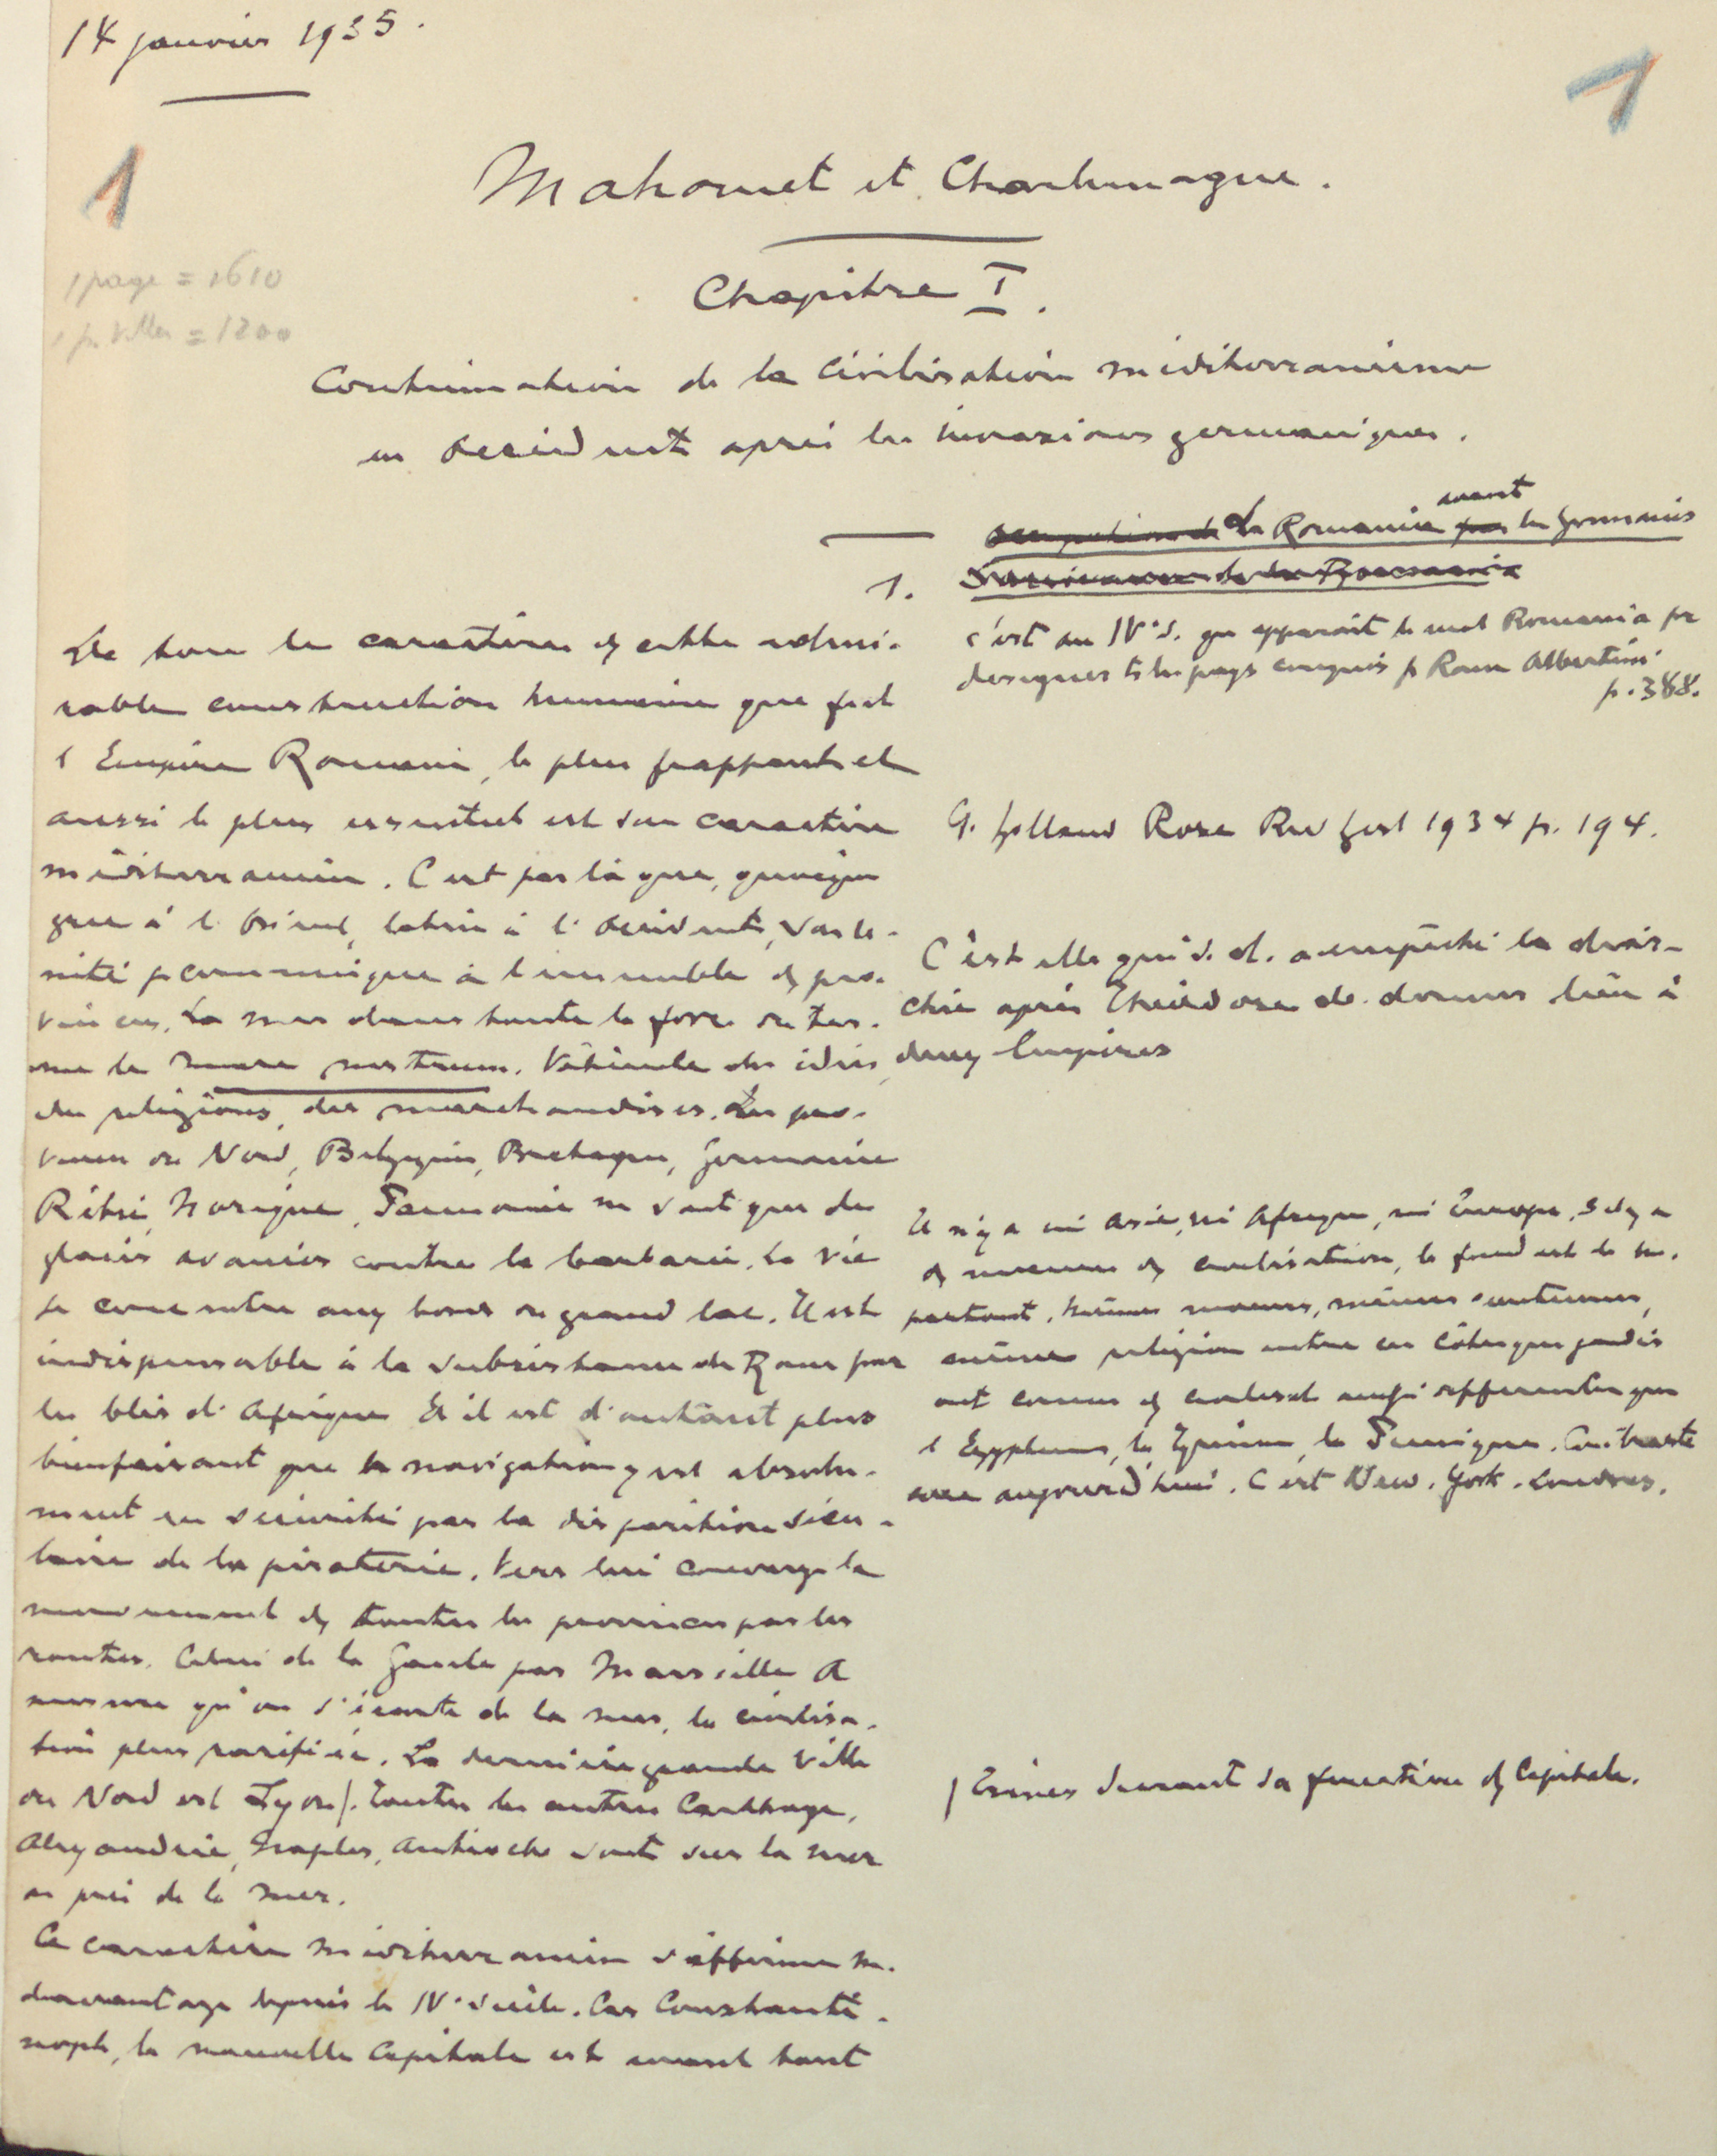 14 janvier 1935.
1
1
1 page = 1610
= 1200
Mahomet et Charlemagne.
Chapitre I.
Continuation de la civilisation méditerranéenne
en Occident après les invasions germaniques.
La Romania avant les Germains
1.
De tous les caractères de cette admi-
rable construction humaine que fut
l'Empire Romain, le plus frappant et
aussi le plus essentiel est son caractère
méditerranéen. C'est par là que, quoique
grec à l'Orient, latin à l'Occident, son u-
nité se communique à l'ensemble des pro-
vinces. La mer dans toute la force du ter-
me la mare nostrum. Véhicule des idées,
des religions, des marchandises. Les pro-
vinces du Nord, Belgique, Bretagne, Germanie
Rétie, Norique, Pannonie ne sont que des
glacis avancés contre la barbarie. La vie
se concentre aux bords du grand lac. Il est
indispensable à la subsistance de Rome par
les blés d'Afrique. Et il est d'autant plus
bienfaisant que la navigation y est absolu-
ment en sécurité par la disparition sécu-
laire de la piraterie. Vers lui converge le
mouvement de toutes les provinces par les
routes. Celui de la Gaule par Marseille. A
mesure qu'on s'écarte de la mer, la civilisa-
tion plus raréfiée. La dernière grande ville
du Nord est Lyon/. Toutes les autres Carthage,
Alexandrie, Naples, Antioche sont sur la mer
ou près de la mer.
Ce caractère méditerranéen s'affirme m.
davantage depuis le IVe siècle. Car Constanti-
nople, la nouvelle capitale est avant tout
c'est au IVe s. que apparait le mot Romania pr
designer ts les pays conquis p Rome Albertini
p. 388.
G. Holland Rose Rev hist 1934 p. 194.
C'est elle qui s. d. a empêché la dias-
chie après Théodose de donner lieu à
deux Empires
Il n'y a ni Asie, ni Afrique, ni Europe, s'il y a
de civilisation, le fond est le m.
partout. Mêmes moeurs, mêmes coutumes,
mêmes religion entre ces côtes que jadis
ont connu des civilisat aussi différentes que
l'Egyptienne, la Tyrienne, la Punique. Contraste
avec aujourd'hui. C'est New-York-Londres.
/ Trèves durant sa fonction de Capitale.